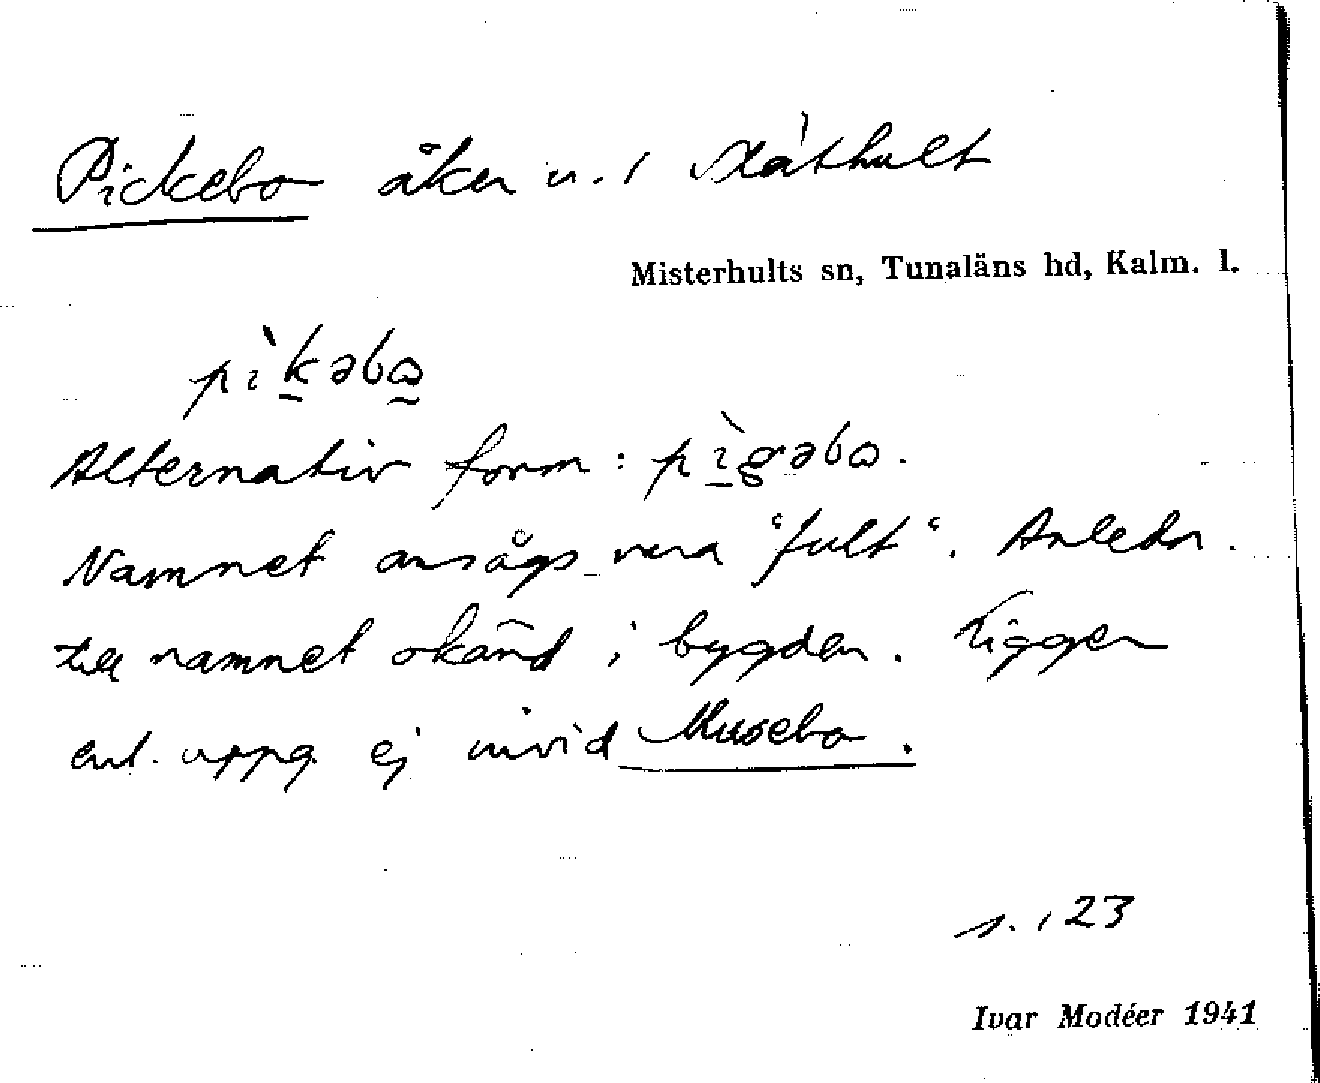 Pickebo åker u. / Släthult
Misterhults sn, Tunaläns hd, Kalm. l.
pìkəbɷ
Alternativ form: pìgəbɷ.
Namnet ansågs vara "fult". Anledn.
till namnet okänd i bygden. Ligger
enl. uppg. ej invid Musebo.
s. 123
Ivar Modéer 1941